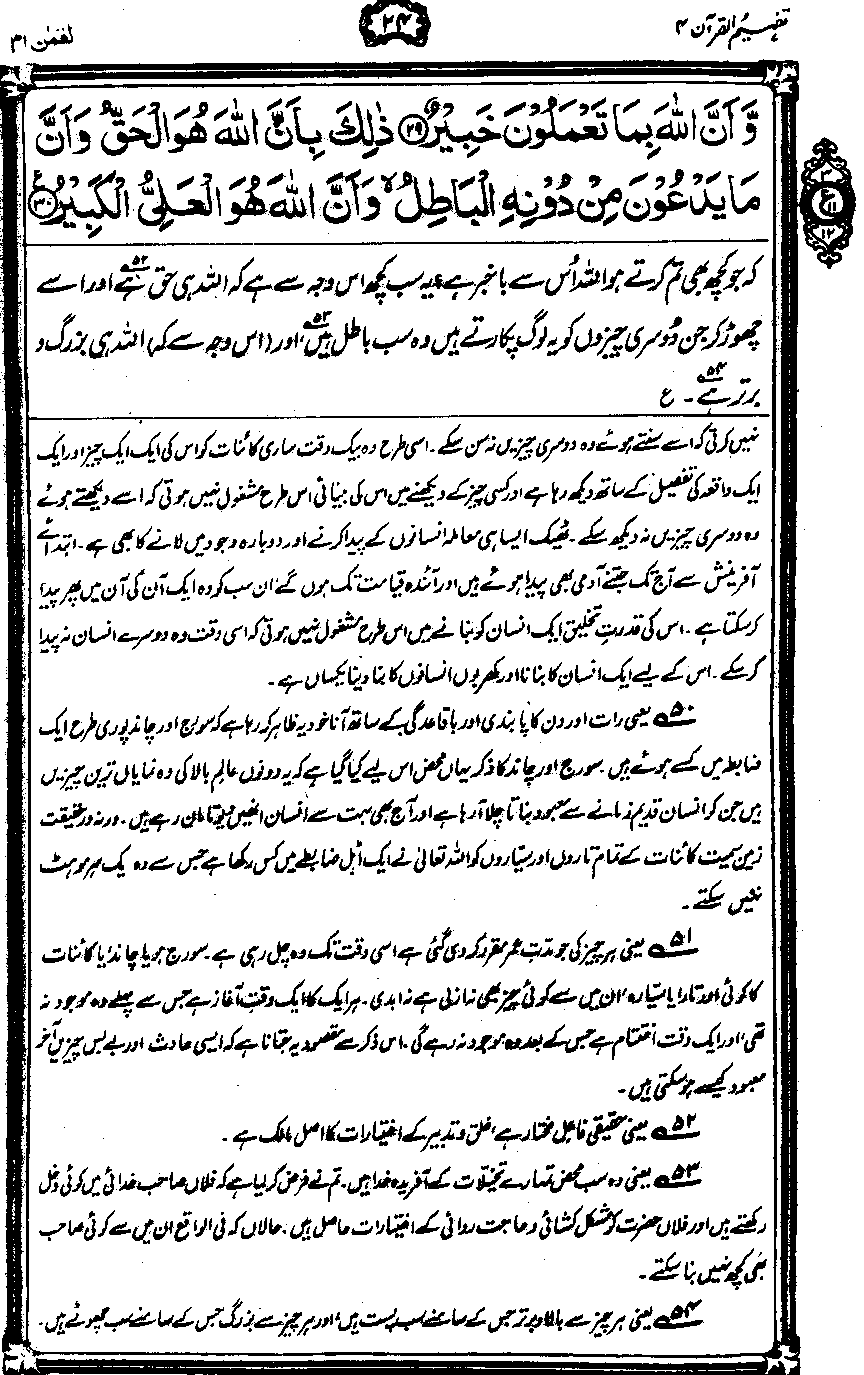 تفہیم القرآن ۴
۲۴
لقمٰن ۳۱
وَّاَنَّ اللّٰهَ بِمَا تَعْمَلُوْنَ خَبِيْرٌ ﴿۲۹﴾ ذٰلِكَ بِاَنَّ اللّٰهَ هُوَ الْحَقُّ وَاَنَّ
مَا يَدْعُوْنَ مِنْ دُوْنِهِ الْبَاطِلُ ۙ وَاَنَّ اللّٰهَ هُوَ الْعَلِيُّ الْكَبِيْرُ ﴿۳۰﴾
۳
ع
۱۱
۱۲
کہ جو کچھ بھی تم کرتے ہو اللہ اُس سے باخبر ہے؟ یہ سب کچھ اس وجہ سے ہے کہ اللہ ہی حق ہے۵۲ اور اسے
چھوڑ کر جن دوسری چیزوں کو یہ لوگ پکارتے ہیں وہ سب باطل ہیں۵۳، اور (اس وجہ سے کہ) اللہ ہی بزرگ و
برتر ہے۵۴۔ ع
نہیں کرتی کہ اسے سنتے ہوئے وہ دوسری چیزیں نہ سن سکے۔ اسی طرح وہ بیک وقت ساری کائنات کو اس کی ایک ایک چیز اور ایک
ایک واقعہ کی تفصیل کے ساتھ دیکھ رہا ہے اور کسی چیز کے دیکھنے میں اس کی بینائی اس طرح مشغول نہیں ہوتی کہ اسے دیکھتے ہوئے
وہ دوسری چیزیں نہ دیکھ سکے۔ ٹھیک ایسا ہی معاملہ انسانوں کے پیدا کرنے اور دوبارہ وجود میں لانے کا بھی ہے۔ ابتدائے
آفرینش سے آج تک جتنے آدمی بھی پیدا ہوئے ہیں اور آئندہ قیامت تک ہوں گے ان سب کو وہ ایک آن کی آن میں پھر پیدا
کر سکتا ہے۔ اس کی قدرتِ تخلیق ایک انسان کو بنانے میں اس طرح مشغول نہیں ہوتی کہ اسی وقت وہ دوسرے انسان نہ پیدا
کر سکے۔ اس کے لیے ایک انسان کا بنانا اور کھربوں انسانوں کا بنا دینا یکساں ہے۔
۵۰ یعنی رات اور دن کا پابندی اور باقاعدگی کے ساتھ آنا خود یہ ظاہر کر رہا ہے کہ سورج اور چاند پوری طرح ایک
ضابطہ میں کسے ہوئے ہیں۔ سورج اور چاند کا ذکر یہاں محض اس لیے کیا گیا ہے کہ یہ دونوں عالمِ بالا کی وہ نمایاں ترین چیزیں
ہیں جن کو انسان قدیم زمانے سے معبود بناتا چلا آ رہا ہے اور آج بھی بہت سے انسان انہیں دیوتا مان رہے ہیں۔ ورنہ درحقیقت
زمین سمیت کائنات کے تمام تاروں اور سیّاروں کو اللہ تعالیٰ نے ایک اٹل ضابطے میں کس رکھا ہے جس سے وہ یک سرِ مو ہٹ
نہیں سکتے۔
۵۱ یعنی ہر چیز کی جو مدتِ عمر مقرر کر دی گئی ہے اسی وقت تک وہ چل رہی ہے۔ سورج ہو یا چاند، یا کائنات
کا کوئی اور تارا یا سیّارہ، ان میں سے کوئی چیز بھی نہ ازلی ہے نہ ابدی۔ ہر ایک کا ایک وقتِ آغاز ہے جس سے پہلے وہ موجود نہ
تھی، اور ایک وقت اختتام ہے جس کے بعد وہ موجود نہ رہے گی۔ اس ذکر سے مقصود یہ جتانا ہے کہ ایسی حادث اور بے بس چیزیں آخر
معبود کیسے ہو سکتی ہیں۔
۵۲ یعنی حقیقی فاعلِ مختار ہے، خلق و تدبیر کے اختیارات کا اصل مالک ہے۔
۵۳ یعنی وہ سب محض تمہارے تخیّلات کے آفریدہ خدا ہیں۔ تم نے فرض کر لیا ہے کہ فلاں صاحب خدائی میں کوئی دخل
رکھتے ہیں اور فلاں حضرت کو مشکل کشائی و حاجت روائی کے اختیارات حاصل ہیں۔ حالاں کہ فی الواقع ان میں سے کوئی صاحب
بھی کچھ نہیں بنا سکتے۔
۵۴ یعنی ہر چیز سے بالا و برتر جس کے سامنے سب پست ہیں، اور ہر چیز سے بزرگ جس کے سامنے سب چھوٹے ہیں۔